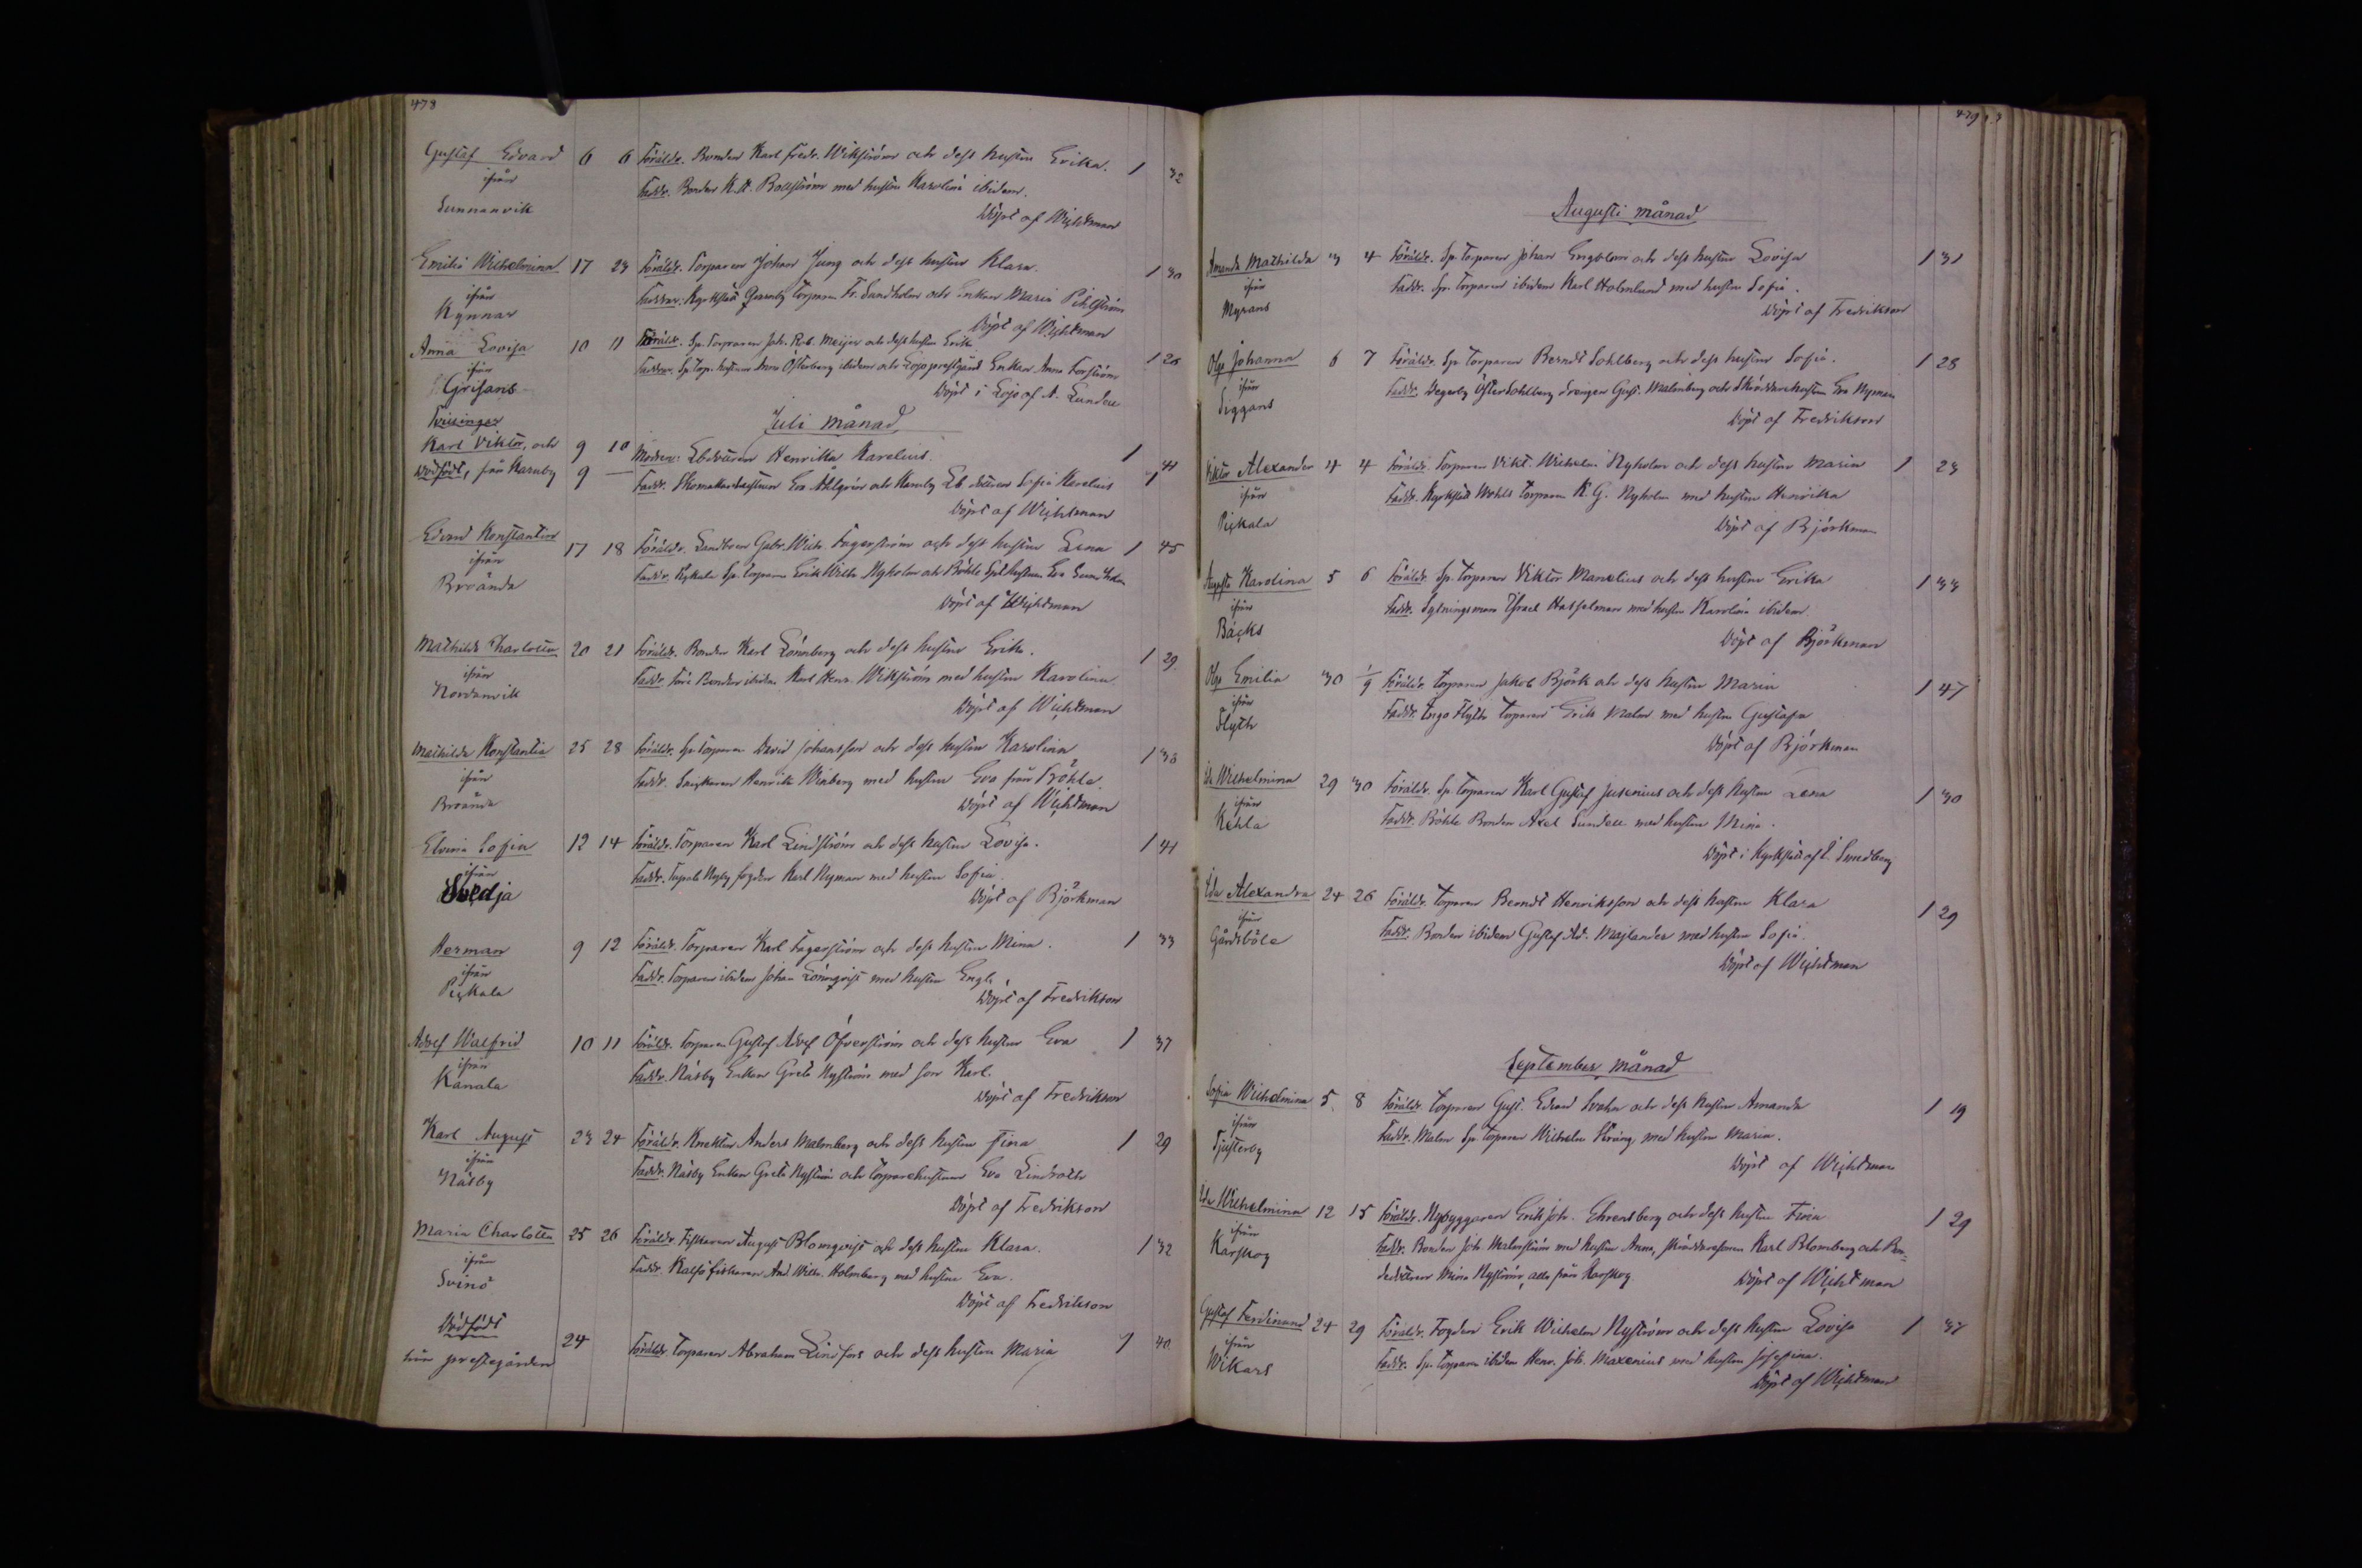 478
Gustaf Edvard 6 6 Föräldr. Bonden Karl Fredr. Wikström och dess hustru Erika. 1 32
ifrån Faddr. Bonden K. A. Bollström med hustru Karolina ibidem.
Sunnanvik Döpt af Wichtman
Emilia Wilhelmina 17 23 Föräldr. Torparen Johan Jung och dess hustru Klara. 1 30
ifrån Faddrar: Kyrkstad Torparen Fr. Sundholm och Enkan Maria Pihlström
Kynnar Döpt af Wichtman
Anna Lovisa 10 11 Föräldr. Sp. Torparen Joh. Rob. Meijer och dess hustru Erika 1 26
ifrån Faddrar. Sp. Torp. hustrun Anna Österberg ibidem och Lojo prestgård Enkan Anna Forström
Grisans Döpt i Lojo af A. Lundell
Juli Månad
Tvillingar
Karl Viktor, och 9 10 Modren: Lbdottren Henrika Karelius. 1
Dödfödt, från Karnby 9 — Faddr. Skomakarhustrun Eva Ahlgren och Karnby Lb dottren Sofia Karelius 1 41
Döpt af Wichtman
Edvard Konstantin 17 18 Föräldr. Landboen Gabr. Wilh. Fagerström och dess hustru Lena 1 45
ifrån Faddr. Pickala Sp. torparen Erik Wilh. Nyholm och Böhle hustrun Eva
Broända Döpt af Wichtman
Mathilda Charlotta 20 21 Föräldr. Bonden Karl Lönnberg och dess hustru Erika. 1 29
ifrån Faddr. Bonden ibidem Karl Henr. Wikström med hustru Karolina
Nordanvik Döpt af Wichtman
Mathilda Konstantia 25 28 Föräldr. Sp. Torparen David Johansson och dess hustru Karolina 1 38
ifrån Faddr. Snickaren Henrik Winberg med hustru Eva från Böhle.
Broända Döpt af Wichtman
Elvira Sofia 12 14 Föräldr. Torparen Karl Lindström och dess hustru Lovisa. 1 41
ifrån Faddr. Nyby fogden Karl Nyman med hustru Sofia.
Svedja Döpt af Björkman
Herman 9 12 Föräldr. Torparen Karl Fagerström och dess hustru Mina. 1 33
ifrån Faddr. Torparen ibidem Johan Lönnqvist med hustru Engla
Pickala Döpt af Fredrikson
Adolf Walfrid 10 11 Föräldr. Torparen Gustaf Adolf Öfverström och dess hustru Eva 1 37
ifrån Faddr. Näsby Enkan Greta Nyström med son Karl.
Kanala Döpt af Fredrikson
Karl August 23 24 Föräldr. Knekten Anders Malmberg och dess hustru Fina 1 29
ifrån Faddr. Näsby Enkan Greta Nyström och Torparehustrun Eva Lindroth
Näsby Döpt af Fredrikson
Maria Charlotta 25 26 Föräldr. Fiskaren August Blomqvist och dess hustru Klara. 1 32
ifrån Faddr. Kalfö fiskaren And. Wilh. Holmberg med hustru Eva.
Svinö Döpt af Fredrikson
Dödfödt
från prestegården 24 Föräldr. Torparen Abraham Lindfors och dess hustru Maria 1 40
479
Augusti Månad
Amanda Mathilda 3 4 Föräldr. Sp. Torparen Johan Engblom och dess hustru Lovisa 1 31
ifrån Faddr. Sp. Torparen ibidem Karl Holmlund med hustru Sofia.
Myrans Döpt af Fredrikson
Olga Johanna 6 7 Föräldr. Sp. Torparen Berndt Sohlberg och dess hustru Sofia. 1 28
ifrån Faddr. Degerby Östersohlberg drengen Gust. Malmberg och Skräddarehustrun Eva Nyman
Siggans Döpt af Fredrikson
Viktor Alexander 4 4 Föräldr. Torparen Vikt. Wilhelm Nyholm och dess hustru Maria 1 23
ifrån Faddr. Kyrkstad Wohls torparen K. G. Nyholm med hustru Henrika
Pickala Döpt af Björkman
Augusta Karolina 5 6 Föräldr. Sp. Torparen Viktor Manelius och dess hustru Erika 1 33
ifrån Faddr. Sytningsman Israel Hasselman med hustru Karolina ibidem
Bäcks Döpt af Björkman
Olga Emilia 30 1/9 Föräldr. Torparen Jakob Björk och dess hustru Maria 1 47
ifrån Faddr. Ingo Flyth torparen Erik Malm med hustru Gustafva
Flyth Döpt af Björkman
Ida Wilhelmina 29 30 Föräldr. Sp. Torparen Karl Gustaf Jusenius och dess hustru Lena 1 30
ifrån Faddr. Böhle Bonden Axel Sundell med hustru Mina.
Kehla Döpt i Kyrkstad af Smedberg
Ida Alexandra 24 26 Föräldr. Torparen Berndt Henriksson och dess hustru Klara 1 29
ifrån Faddr. Bonden ibidem Gustaf Ad. Majlander med hustru Sofia.
Gårdsböle Döpt af Wichtman
September Månad
Sofia Wilhelmina 5 8 Föräldr. Torparen Gust. Edvard Svahn och dess hustru Amanda 1 19
ifrån Faddr. Malm Sp. Torparen Wilhelm Åkring, med hustru Maria.
Tjusterby Döpt af Wichtman
Ida Wilhelmina 12 15 Föräldr. Nybyggaren Erik Joh. Ehrensberg och dess hustru Fina 1 29
ifrån Faddr. Bonden Joh. Malmström med hustru Anna, skräddaresonen Karl Blomberg och Bon-
Karskog dedottren Mina Nyström, alla från Karskog. Döpt af Wichtman
Gustaf Ferdinand 24 29 Föräldr. Fogden Erik Wilhelm Nyström och dess hustru Lovisa 1 37
ifrån Faddr. Sp. Torparen ibidem Henr. Joh. Maxenius med hustru Josefina.
Wikars Döpt af Wichtman